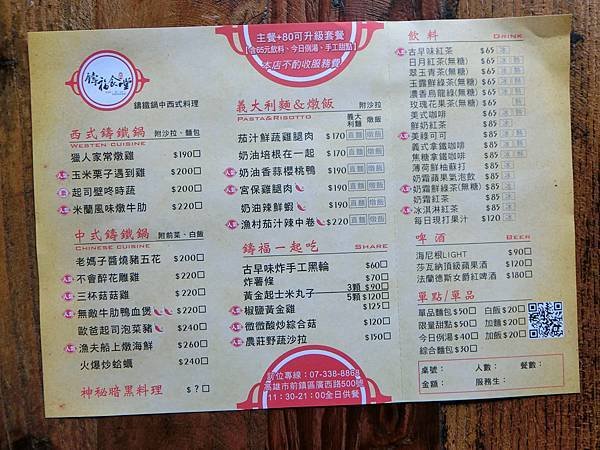 主餐+80可升級套餐
【含65元飲料、今日例湯、手工甜點】
本店不酌收服務費
鑄福食堂
鑄鐵鍋中西式料理
西式鑄鐵鍋 附沙拉、麵包
WESTEN CUISINE
獵人家常燉雞 $190□
人氣 玉米栗子遇到雞 $200□
起司豐咚時蔬 $200□
人氣 米蘭風味燉牛肋 $220□
中式鑄鐵鍋 附前菜、白飯
CHINESE CUISINE
老媽子醬燒豬五花 $200□
人氣 不會醉花雕雞 $220□
人氣 三杯菇菇雞 $220□
人氣 無敵牛肋鴨血煲 $220□
歐爸起司泡菜豬 $240□
人氣 漁夫船上燉海鮮 $260□
火爆炒蛤蠣 $240□
神秘暗黑料理 $?□
義大利麵&燉飯 附沙拉
PASTA&RISOTTO 義大利麵 燉飯
茄汁鮮蔬雞腿肉 $170 直麵 燉飯
奶油培根在一起 $170 直麵 燉飯
人氣 奶油香蒜櫻桃鴨 $190 直麵 燉飯
人氣 宮保雞腿肉 $190 直麵 燉飯
奶油辣鮮蝦 $190 直麵 燉飯
人氣 漁村茄汁辣中卷 $220 直麵 燉飯
鑄福一起吃 SHARE
古早味炸手工黑輪 $60□
炸薯條 $70□
黃金起士米丸子 3顆 $90□
5顆 $120□
人氣 椒鹽黃金雞 $125□
人氣 微微酸炒綜合菇 $120□
人氣 農莊野蔬沙拉 $150□
訂位專線：07-338-8868
高雄市前鎮區廣西路500號
11：30-21：00全日供餐
飲料 DRINK
人氣 古早味紅茶 $65 冰
日月紅茶(無糖) $65 冰 熱
翠玉青茶(無糖) $65 冰 熱
玉露鮮綠茶(無糖) $65 冰 熱
濃香烏龍綠(無糖) $65 冰 熱
玫瑰花果茶(無糖) $65 冰 熱
美式咖啡 $65 冰 熱
鮮奶紅茶 $65 冰 熱
人氣 美祿可可 $65 冰 熱
義式拿鐵咖啡 $65 冰 熱
焦糖拿鐵咖啡 $65 冰 熱
薄荷鮮柚蘇打 $65 冰
奶霜蘋果氣泡飲 $65 冰
人氣 奶霜鮮綠茶(無糖) $65 冰
奶霜紅茶 $65 冰
人氣 冰淇淋紅茶 $65 冰
每日現打果汁 $120 冰
啤酒 BEER
海尼根LIGHT $90□
莎瓦納頂級蘋果酒 $120□
法蘭德斯女爵紅啤酒 $180□
單點/單品
單品麵包$50□ 白飯$20□
限量甜點$50□ 加麵$20□
今日例湯$40□ 加飯$20□
綜合麵包$30□
桌號： 人數： 餐數：
金額： 服務生：